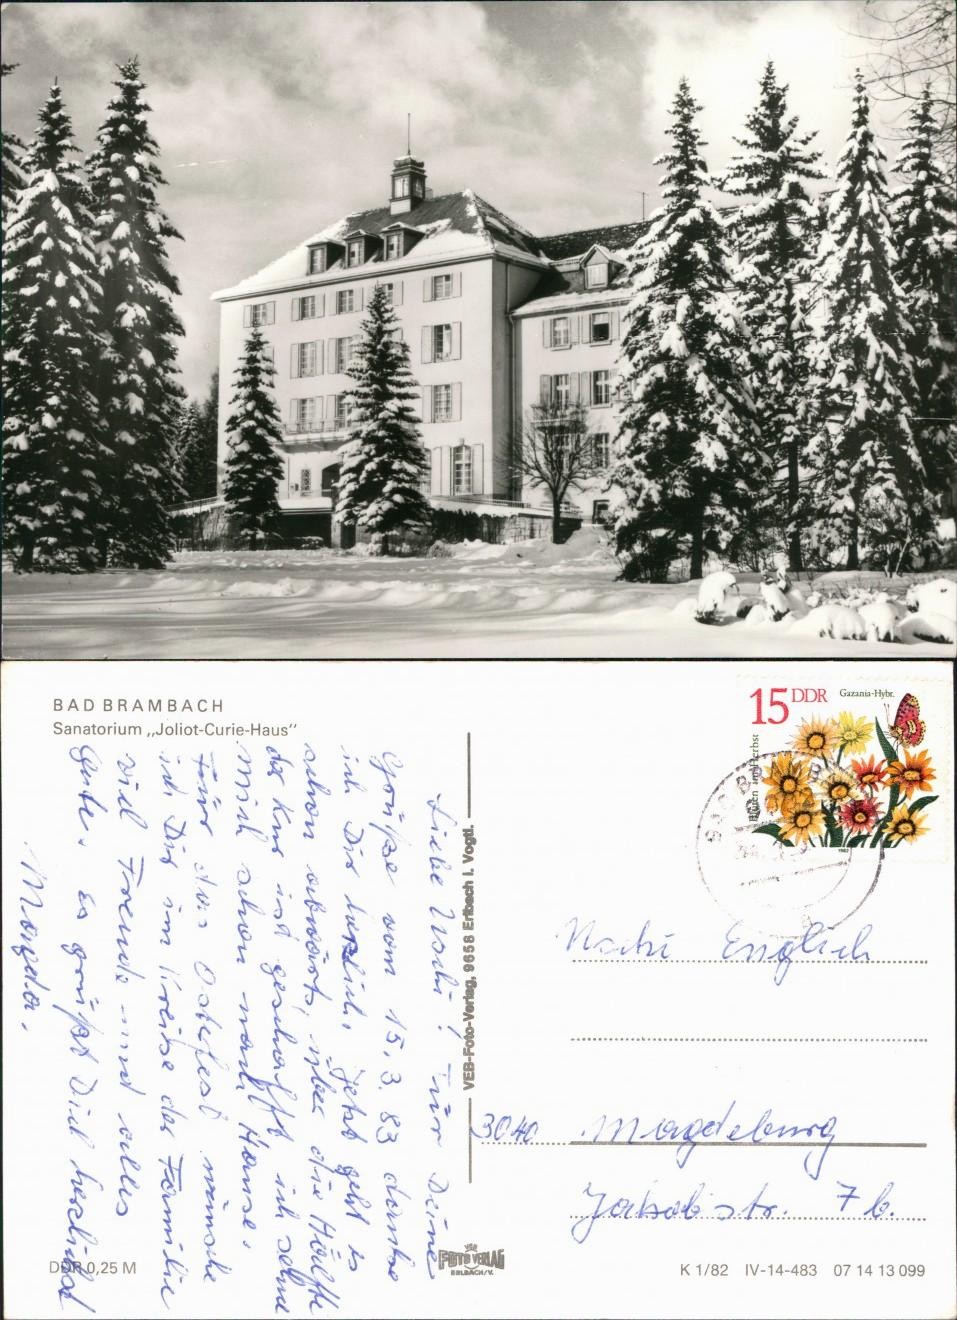 BAD BRAMBACH
Sanatorium „Joliot-Curie-Haus"
Liebe Uschi! Für Deine
Grüße vom 15.3.83 danke
ich Dir herzlich. Jetzt geht es
schon abwärts, über die Hälfte
der Kur ist geschafft ich sehne
mich schon nach Hause.
Für das Osterfest wünsche
ich Dir im Kreise der Familie
viel Freude und alles
Gute. Es grüßt Dich herzlichst
Magda.
VEB-Foto-Verlag, 9658 Erlbach i. Vogtl.
15 DDR
Gazania-Hybr.
Blüten im Herbst
1982
Englich
3040 Magdeburg
Jakobstr. 7 b.
VEB
FOTO VERLAG
ERLBACH/V.
DDR 0,25 M
K 1/82 IV-14-483 07 14 13 099